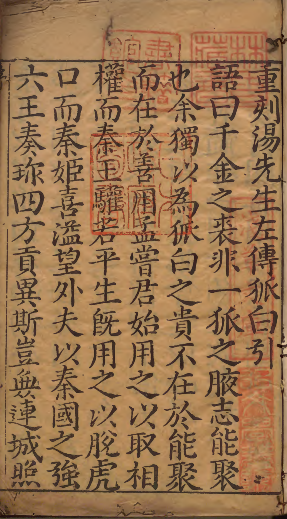 重刻湯先生左傳狐白引
語曰千金之裘非一狐之腋志能聚
也余獨以為狐白之貴不在於能聚
而在於善用孟嘗君始用之以取相
權而秦王驩若平生旣用之以脫虎
口而秦姬喜溢望外夫以秦國之強
六王奏珎四方貢異斯豈無連城照